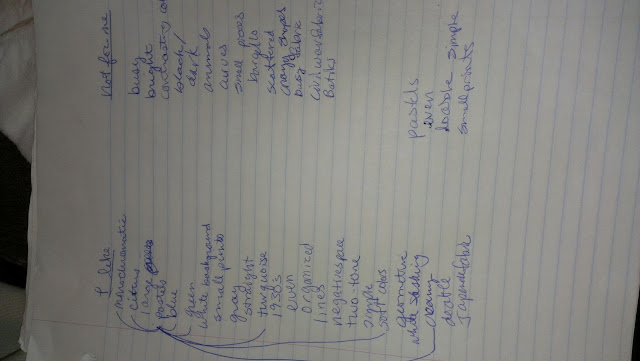 I like
monochromatic
citrus
large
pastels
blue
green
white background
small prints
gray
straight
turquoise
1930's
even
organized
lines
negative space
two tone
simple
soft colors
geometric
white sashing
Not for me
busy
bright
contrasting col
black/
dark
animals
curves
small pieces
bargello
scattered
crazy shapes
busy fabric
Civil war fabric
Batiks
pastels
even
doable simple
small prints